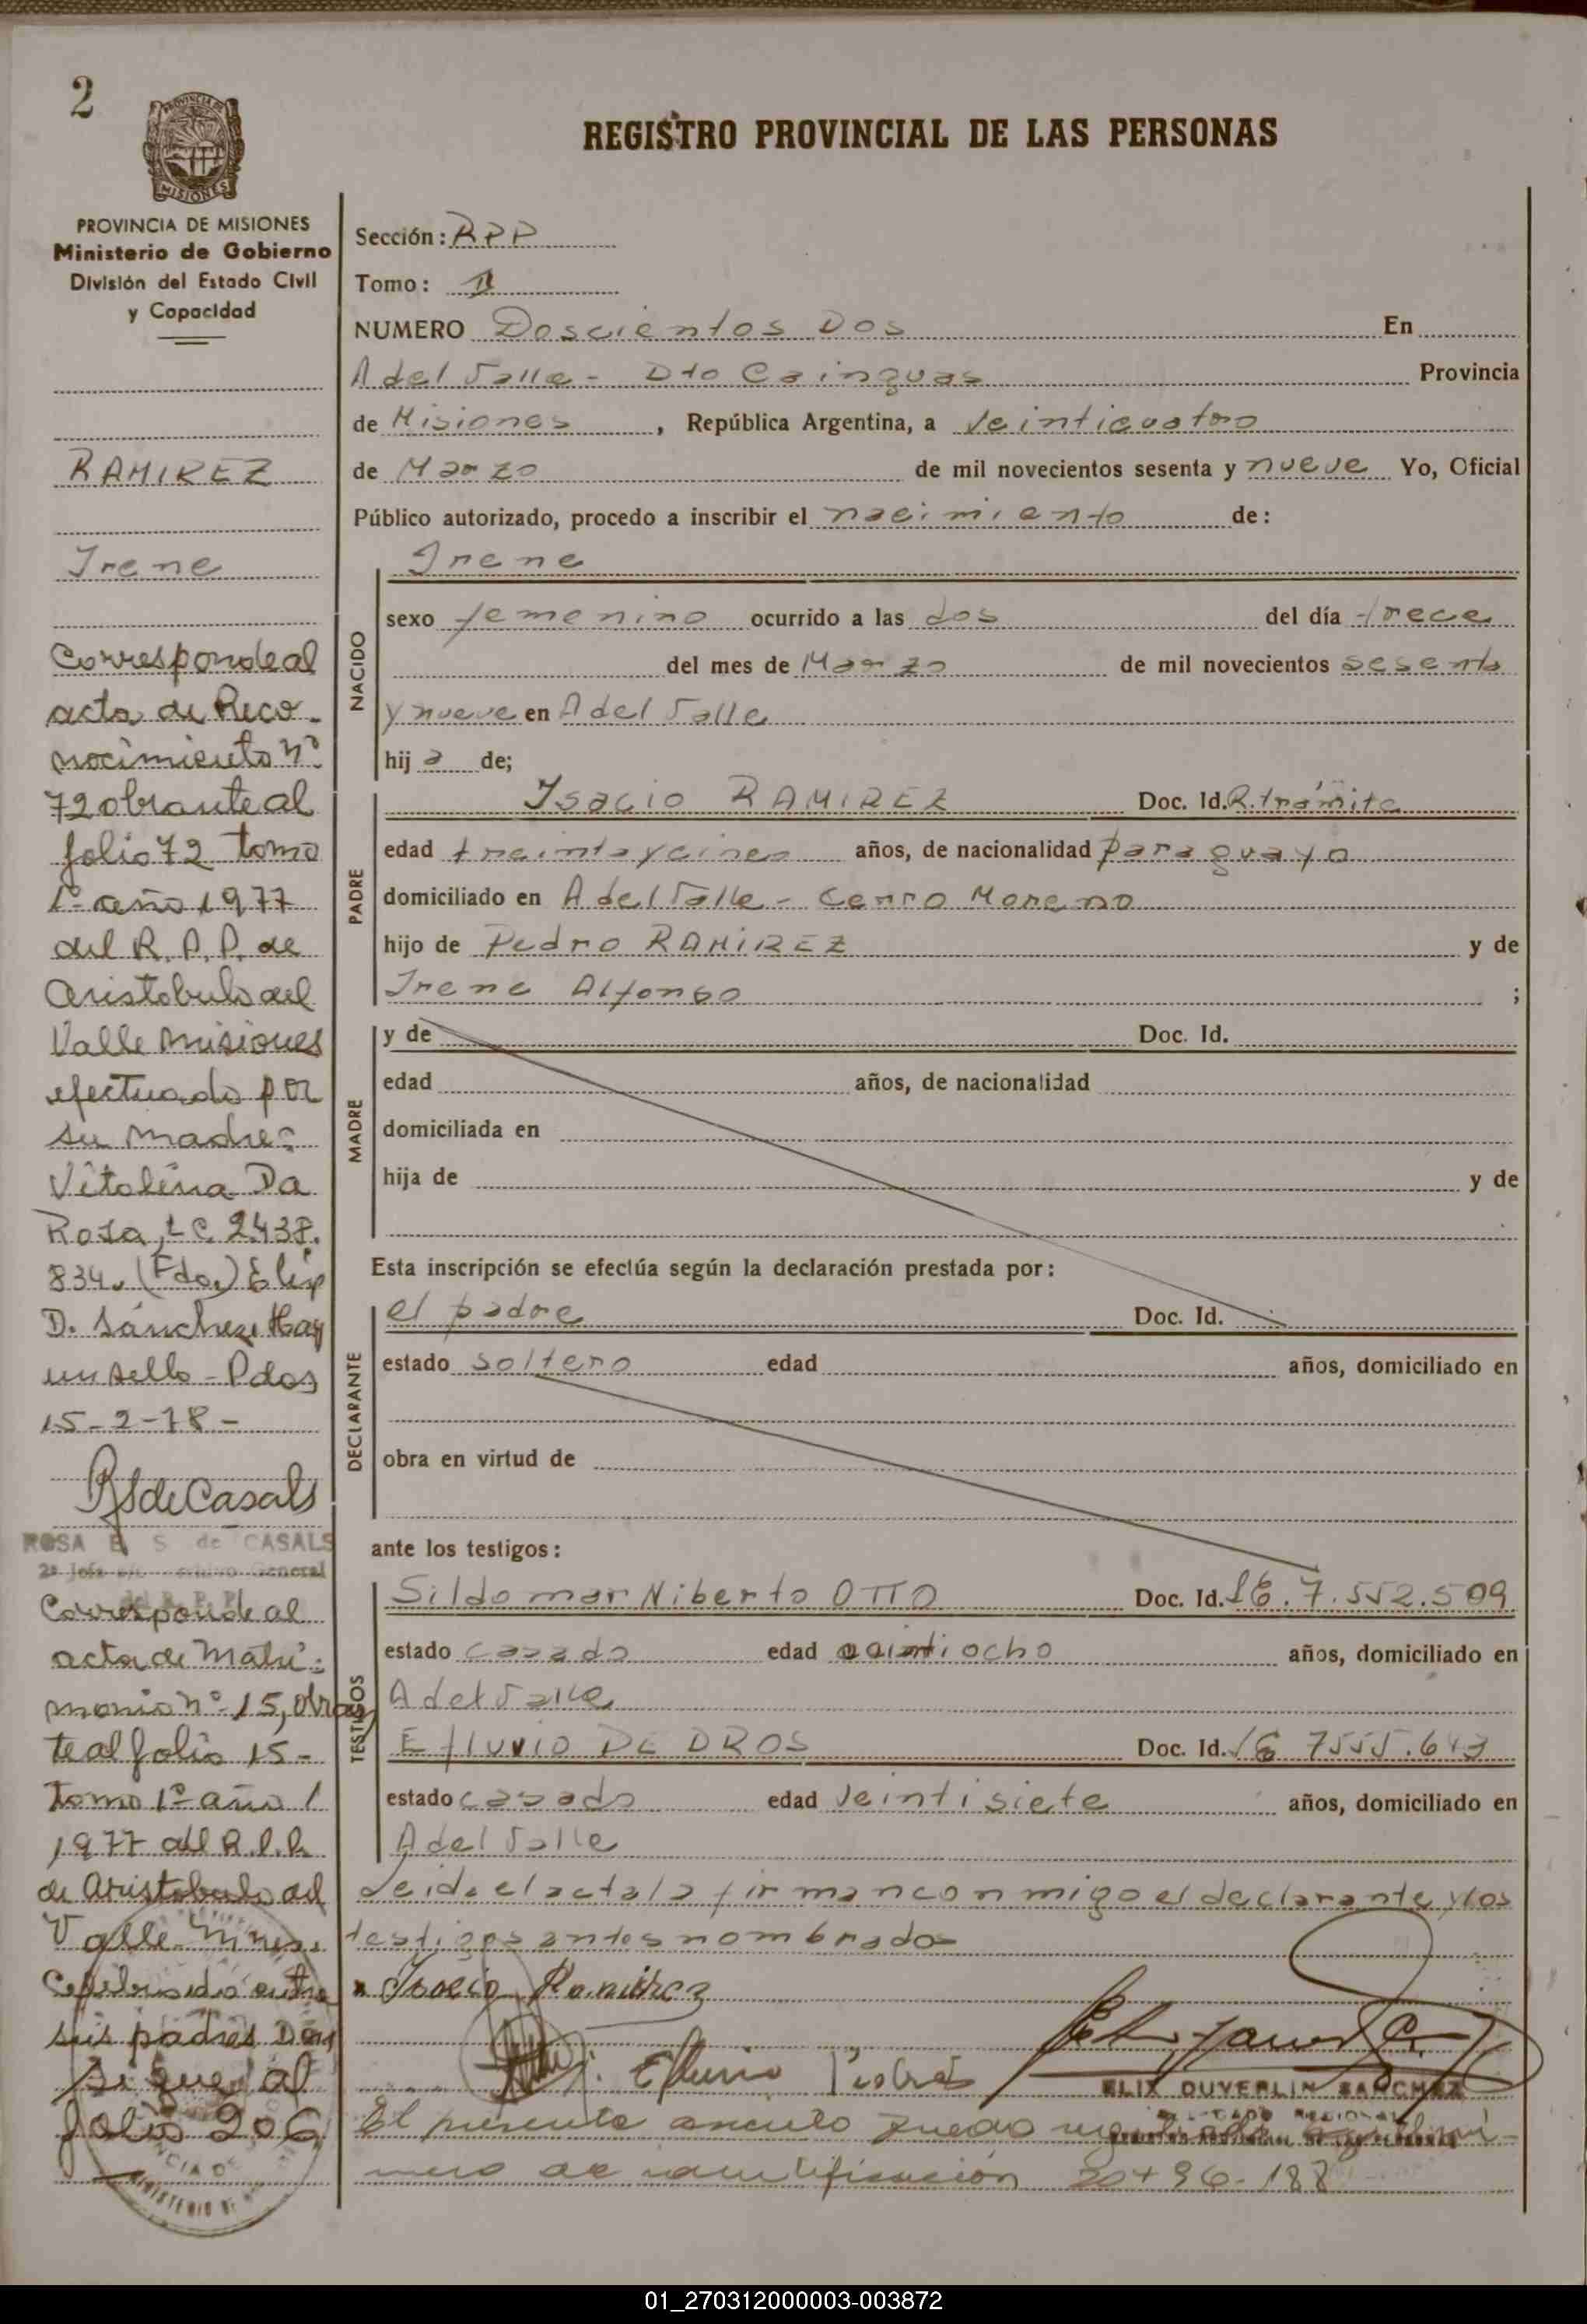 2
REGISTRO PROVINCIAL DE LAS PERSONAS
PROVINCIA DE MISIONES
Ministerio de Gobierno
División del Estado Civil
y Capacidad
RAMIREZ
Irene
Corresponde al
acta de Reco-
nocimiento nº
72 obrante al
folio 72 tomo
1º año 1977
del R.P.P. de
Aristobulo del
Valle Misiones
efectuado por
su madre:
Vitolina Da
Rosa, LC. 2.438.
834. (Fdo.) Elix
D. Sánchez. Hay
un sello - Pdas
15-2-78-
RSdeCasals
ROSA E. S. de CASALS
2º Jefe General
Corresponde al
acta de Matri-
monio nº 15, obran
te al folio 15-
tomo 1º año
1977 del R.P.P.
de Aristobulo del
Valle Mnes.
Celebrado entre
sus padres
Sigue al
folio 206
Sección: RPP
Tomo: II
NUMERO Doscientos Dos En
A del Valle - Dto Cainguas Provincia
de Misiones , República Argentina, a Veinticuatro
de Marzo de mil novecientos sesenta y nueve Yo, Oficial
Público autorizado, procedo a inscribir el nacimiento de:
NACIDO
Irene
sexo femenino ocurrido a las dos del día trece
del mes de Marzo de mil novecientos sesenta
y nueve en A del Valle
hij a de;
PADRE
Isacio RAMIREZ Doc. Id. R. trámite
edad treinta y cinco años, de nacionalidad paraguayo
domiciliado en A del Valle - Cerro Moreno
hijo de Pedro RAMIREZ y de
Irene Alfonso ;
MADRE
y de Doc. Id.
edad años, de nacionalidad
domiciliada en
hija de y de
Esta inscripción se efectúa según la declaración prestada por:
DECLARANTE
el padre Doc. Id.
estado soltero edad años, domiciliado en
obra en virtud de
ante los testigos:
TESTIGOS
Sildomar Niberto OTTO Doc. Id. 7.552.509
estado casado edad veintiocho años, domiciliado en
A del Valle
Efluvio DE DROS Doc. Id. 7555.643
estado casado edad veintisiete años, domiciliado en
A del Valle
Leida el acta la firman conmigo el declarante y los
testigos antes nombrados
Isacio Ramirez
Efluvio
ELIX DUVERLIN SANCHEZ
DELEGADO REGIONAL
REGISTRO PROVINCIAL DE LAS PERSONAS
El presente quedo
mero de identificación 20496-188
01_270312000003-003872